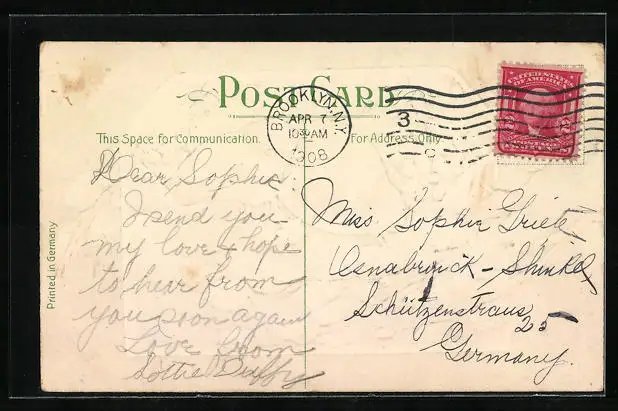 POST CARD
BROOKLYN, N.Y.
APR 7
10 30 AM
1908
3
UNITED STATES
OF AMERICA
POSTAGE
This Space for Communication.
For Address Only.
Printed in Germany
Dear Sophie:
I send you
my love & hope
to hear from
you soon again
Love from
Lottie Duffy
Miss Sophie
Osnabrück - Shinkel
Schützenstrauss
25
Germany.